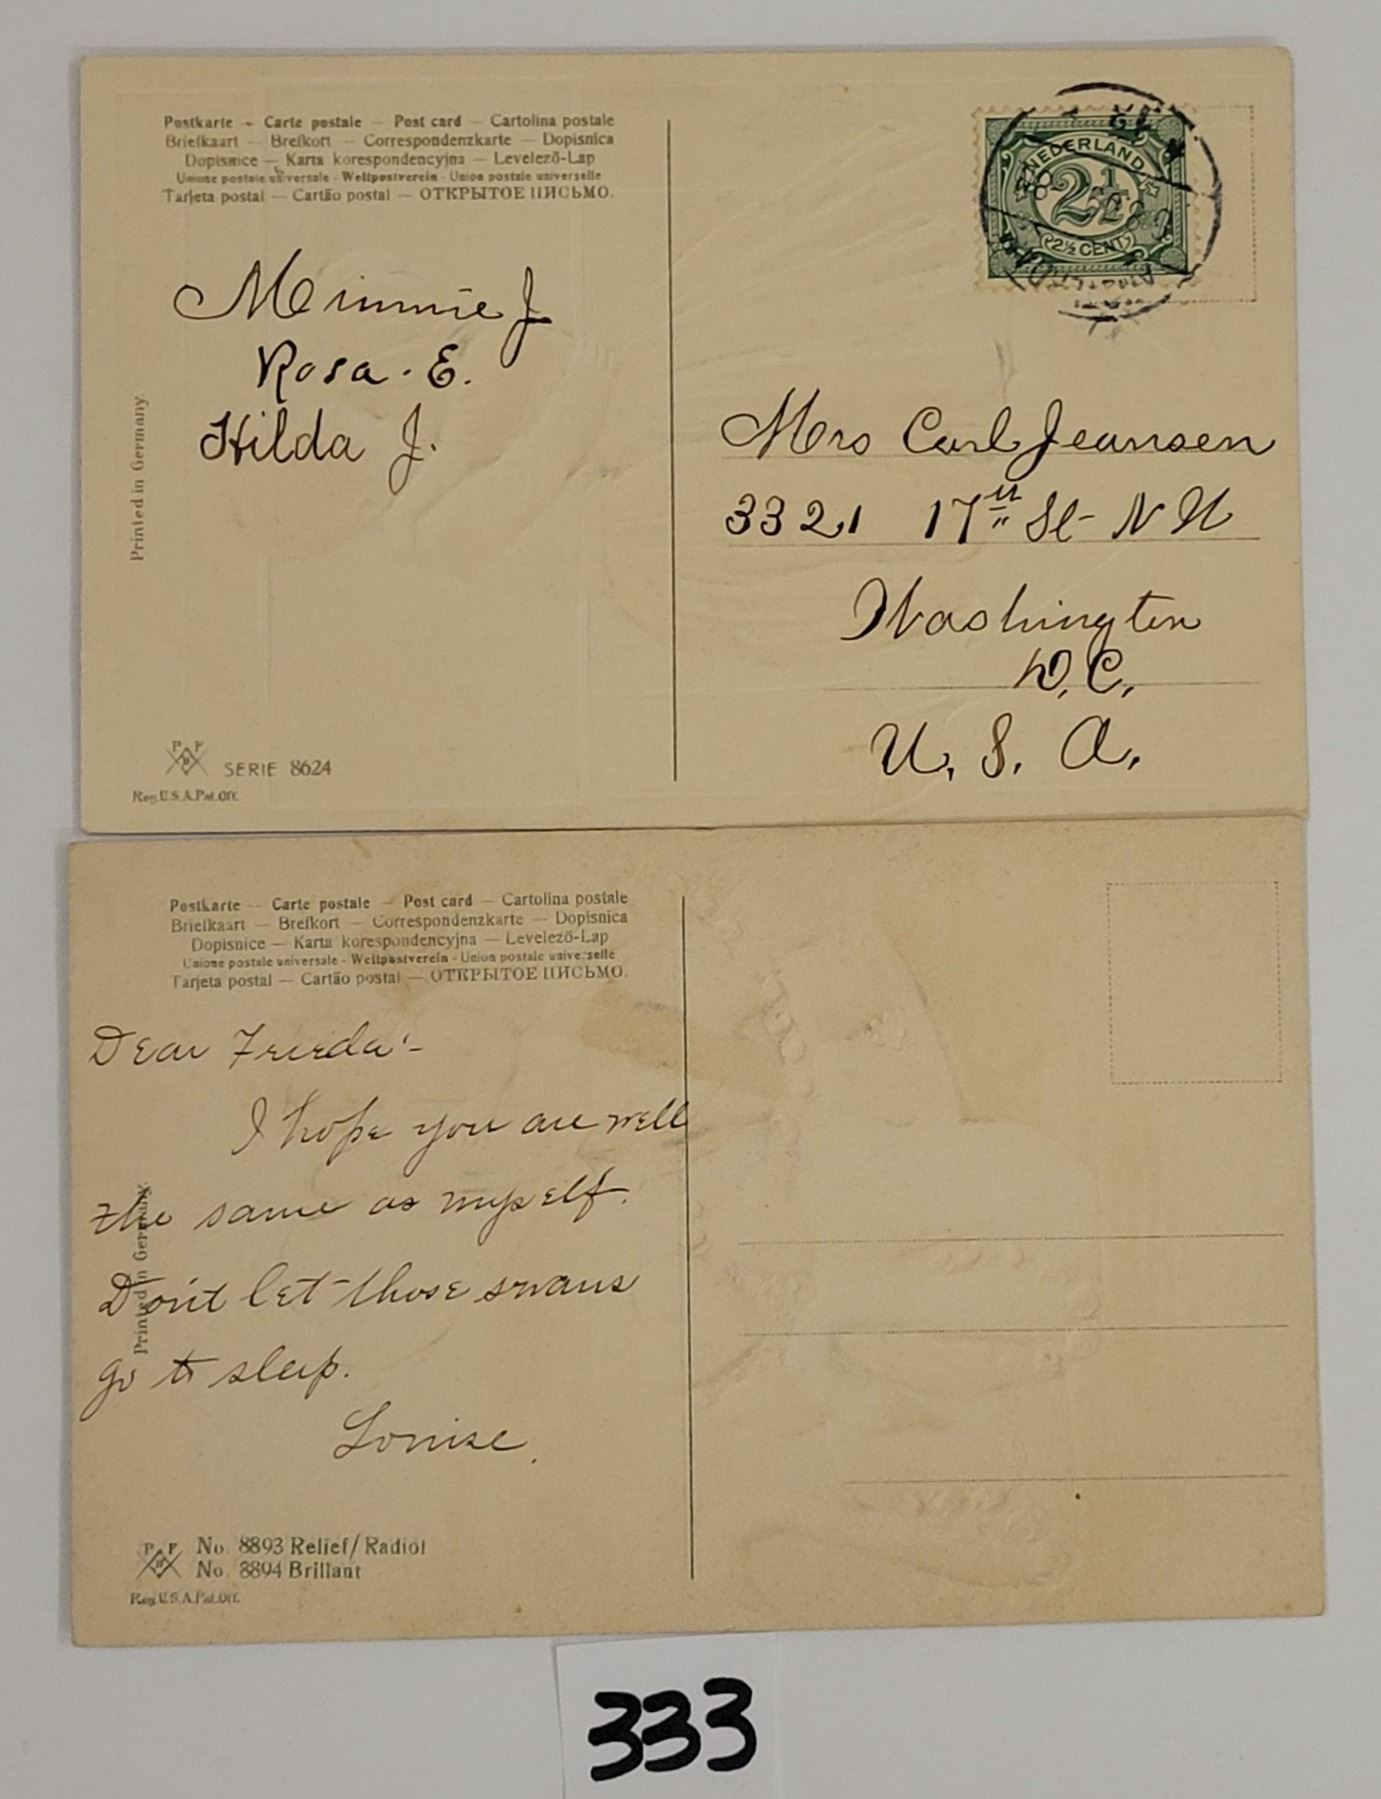 Postkarte - Carte postale - Post card - Cartolina postale
Briefkaart - Brefkort - Correspondenzkarte - Dopisnica
Dopisnice - Karta korespondencyjna - Levelező-Lap
Unione postale universale - Weltpostverein - Union postale universelle
Tarjeta postal - Cartão postal - ОТКРЫТОЕ ПИСЬМО.
NEDERLAND
2½
2½ CENT
Minnie J
Rosa. E.
Hilda J.
Printed in Germany.
Mrs Carl Jeansen
3321 17th St- N W
Washington
D.C.,
U. S. A.
P F
B
SERIE 8624
Reg. U.S.A. Pat. Off.
Postkarte - Carte postale - Post card - Cartolina postale
Briefkaart - Brefkort - Correspondenzkarte - Dopisnica
Dopisnice - Karta korespondencyjna - Levelező-Lap
Unione postale universale - Weltpostverein - Union postale universelle
Tarjeta postal - Cartão postal - ОТКРЫТОЕ ПИСЬМО.
Dear Frieda:-
I hope you are well
the same as myself.
Don't let those swans
go to sleep.
Louise.
Printed in Germany.
P F
B
No. 8893 Relief/Radiol
No. 8894 Brillant
Reg. U.S.A. Pat. Off.
333